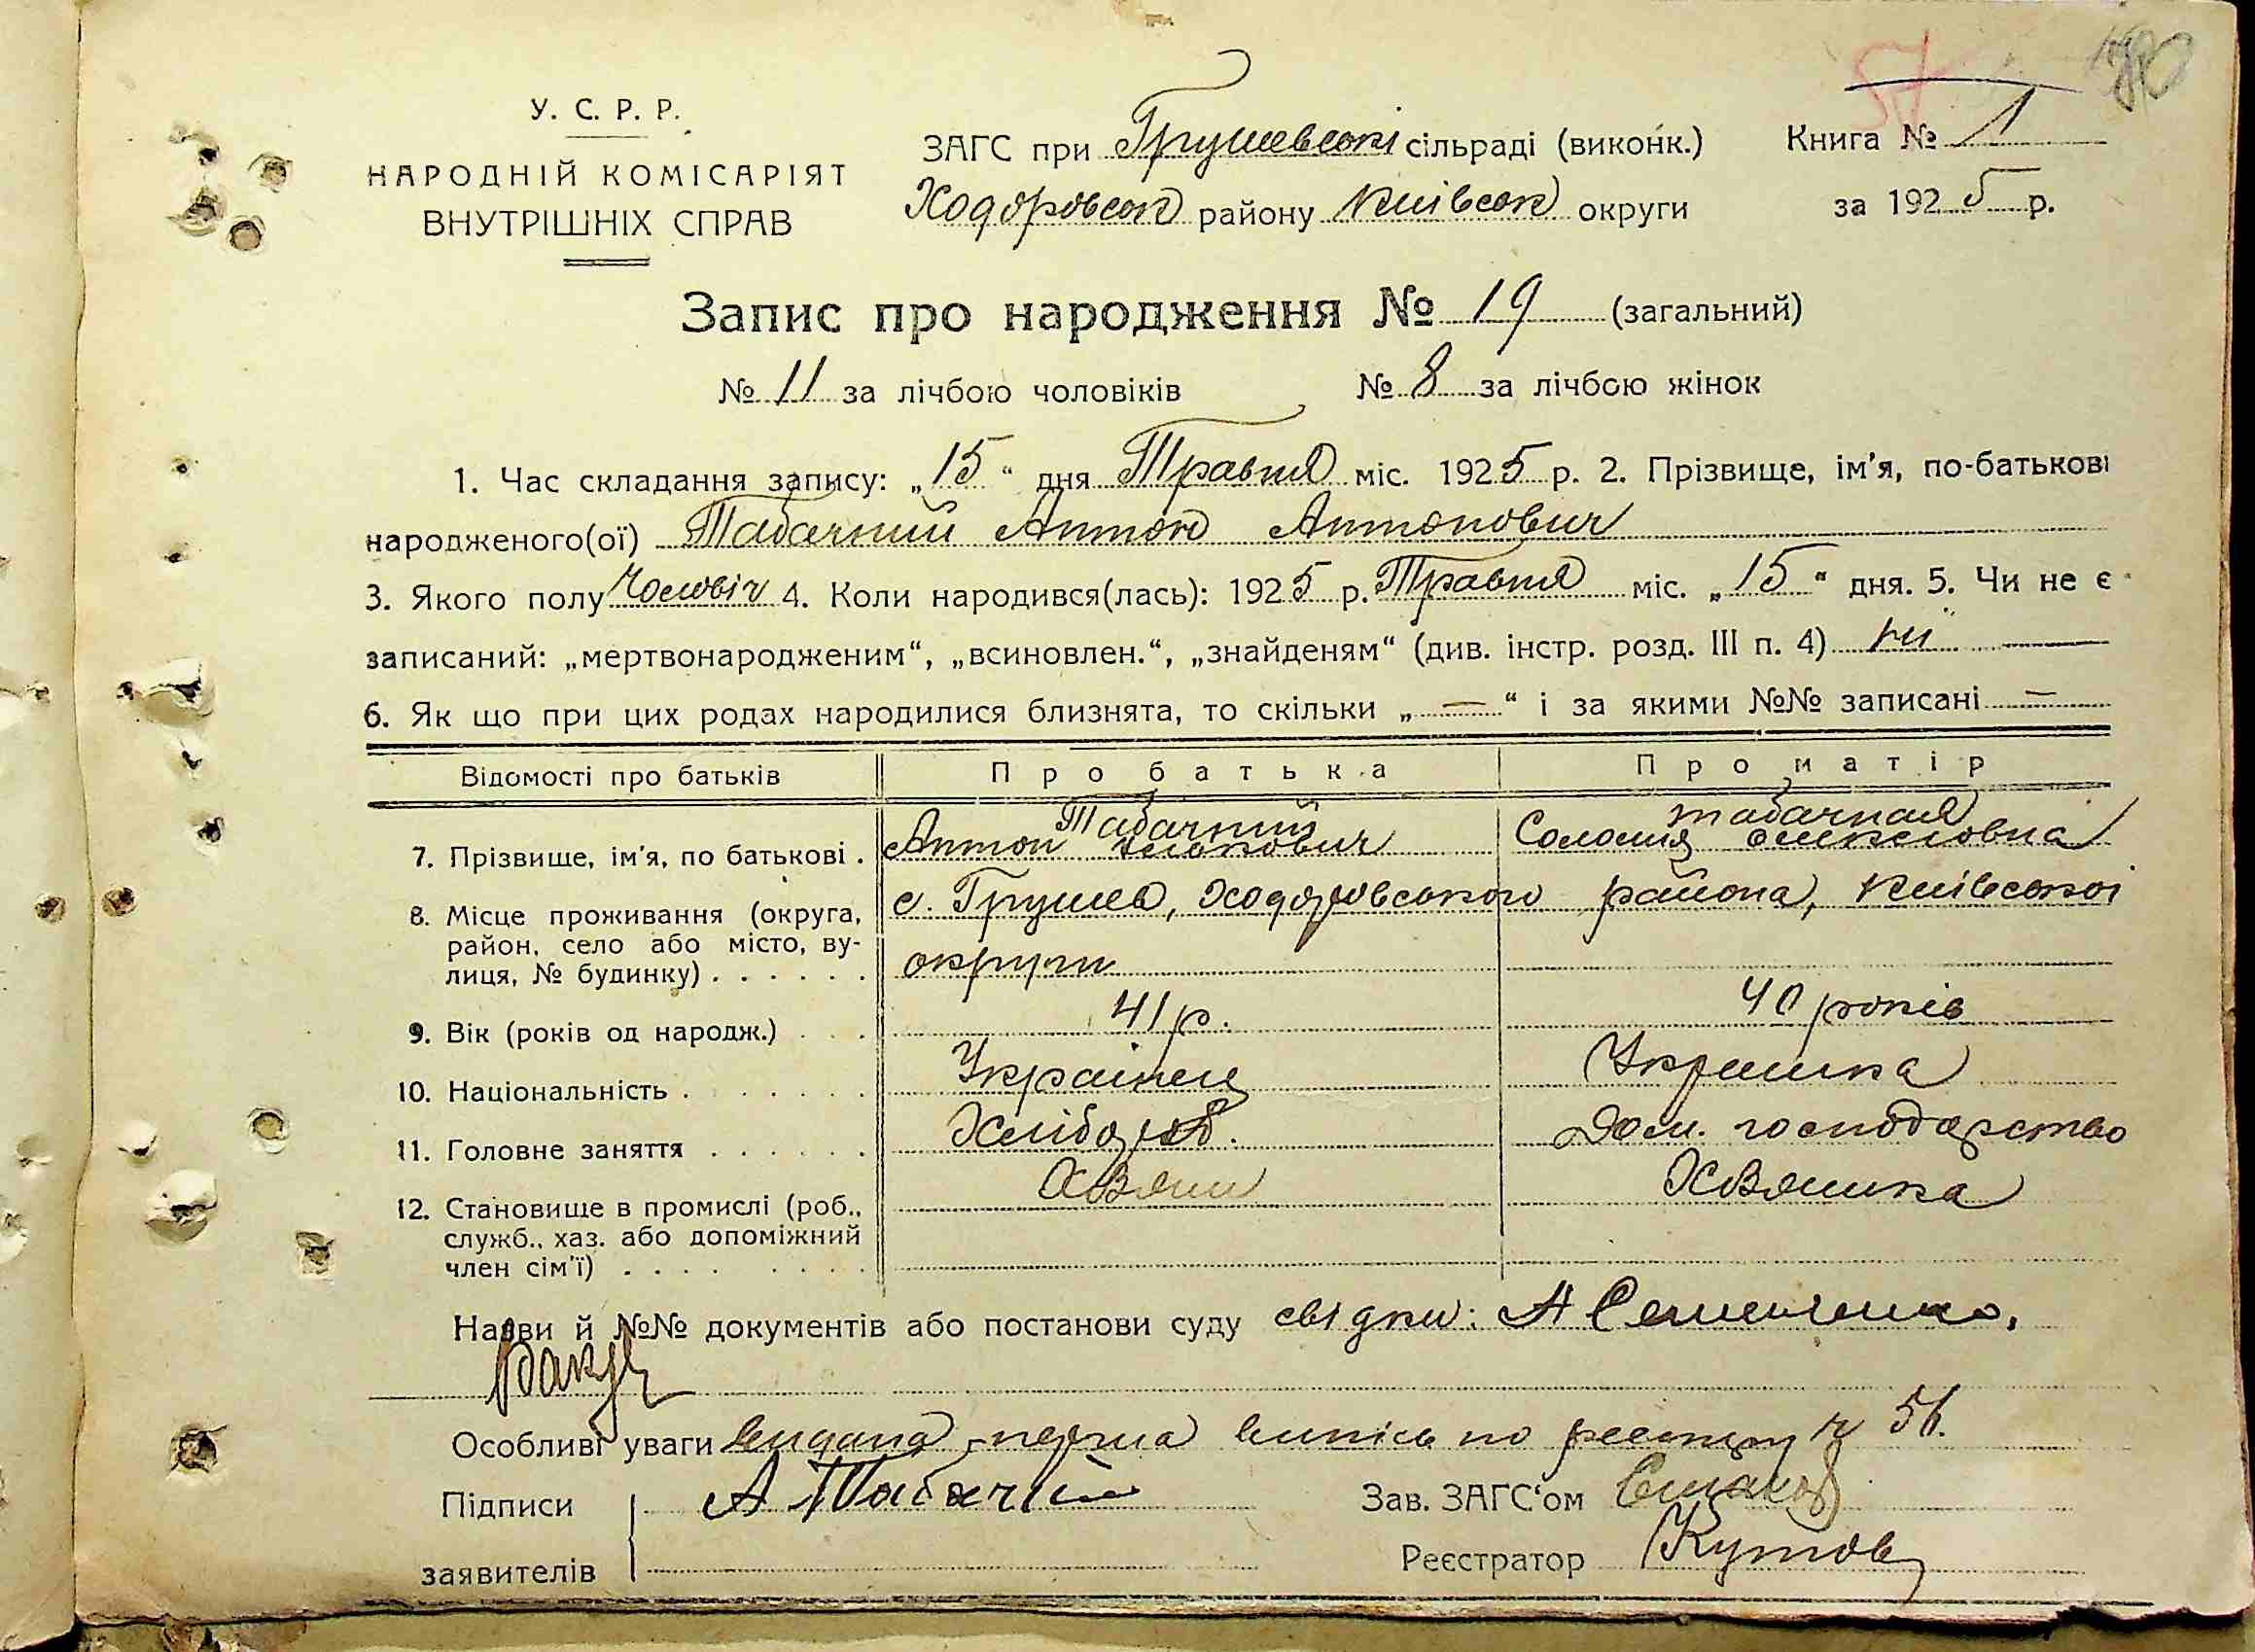 57
У. С. Р. Р.
НАРОДНІЙ КОМІСАРІЯТ
ВНУТРІШНІХ СПРАВ
ЗАГС при Грушевскі сільраді (виконк.)
Ходоровськ району Київськ округи
Книга № 1
за 1925 р.
Запис про народження № 19 (загальний)
№ 11 за лічбою чоловіків № 8 за лічбою жінок
1. Час складання запису: „15“ дня Травня міс. 1925 р. 2. Прізвище, ім'я, по-батькові
народженого(ої) Табачний Антон Антонович
3. Якого полу Чоловіч 4. Коли народився(лась): 1925 р. Травня міс. „15“ дня. 5. Чи не є
записаний: „мертвонародженим“, „всиновлен.“, „знайденям“ (див. інстр. розд. III п. 4) ні
6. Як що при цих родах народилися близнята, то скільки „ — “ і за якими №№ записані —
Відомості про батьків Про батька Про матір
Табачний табачная
7. Прізвище, ім'я, по батькові . Антон Соломия
8. Місце проживання (округа, с. Грушев, Ходоровського района, Київської
район, село або місто, ву-
лиця, № будинку) . . . . . . округи
9. Вік (років од народж.) . . . 41 р. 40 років
10. Національність . . . . . . . Українец Українка
11. Головне заняття . . . . . . Хлібороб. Дом. господарство
12. Становище в промислі (роб., Хазяин Хазяика
служб., хаз. або допоміжний
член сім'ї) . . . . . . . .
Назви й №№ документів або постанови суду свідки: А
Особливі уваги видана перша випісь по реестру № 51.
Підписи А Табачний Зав. ЗАГС'ом
заявителів Реєстратор Кутов